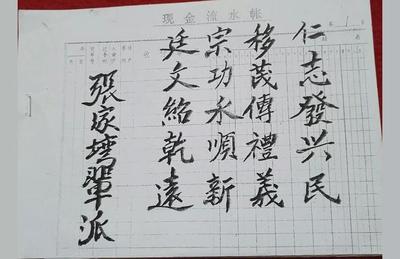 现金流水帐
仁志發兴民
移茂傳禮義
宗功永順新
廷文紹乾遠
張家塆輩派